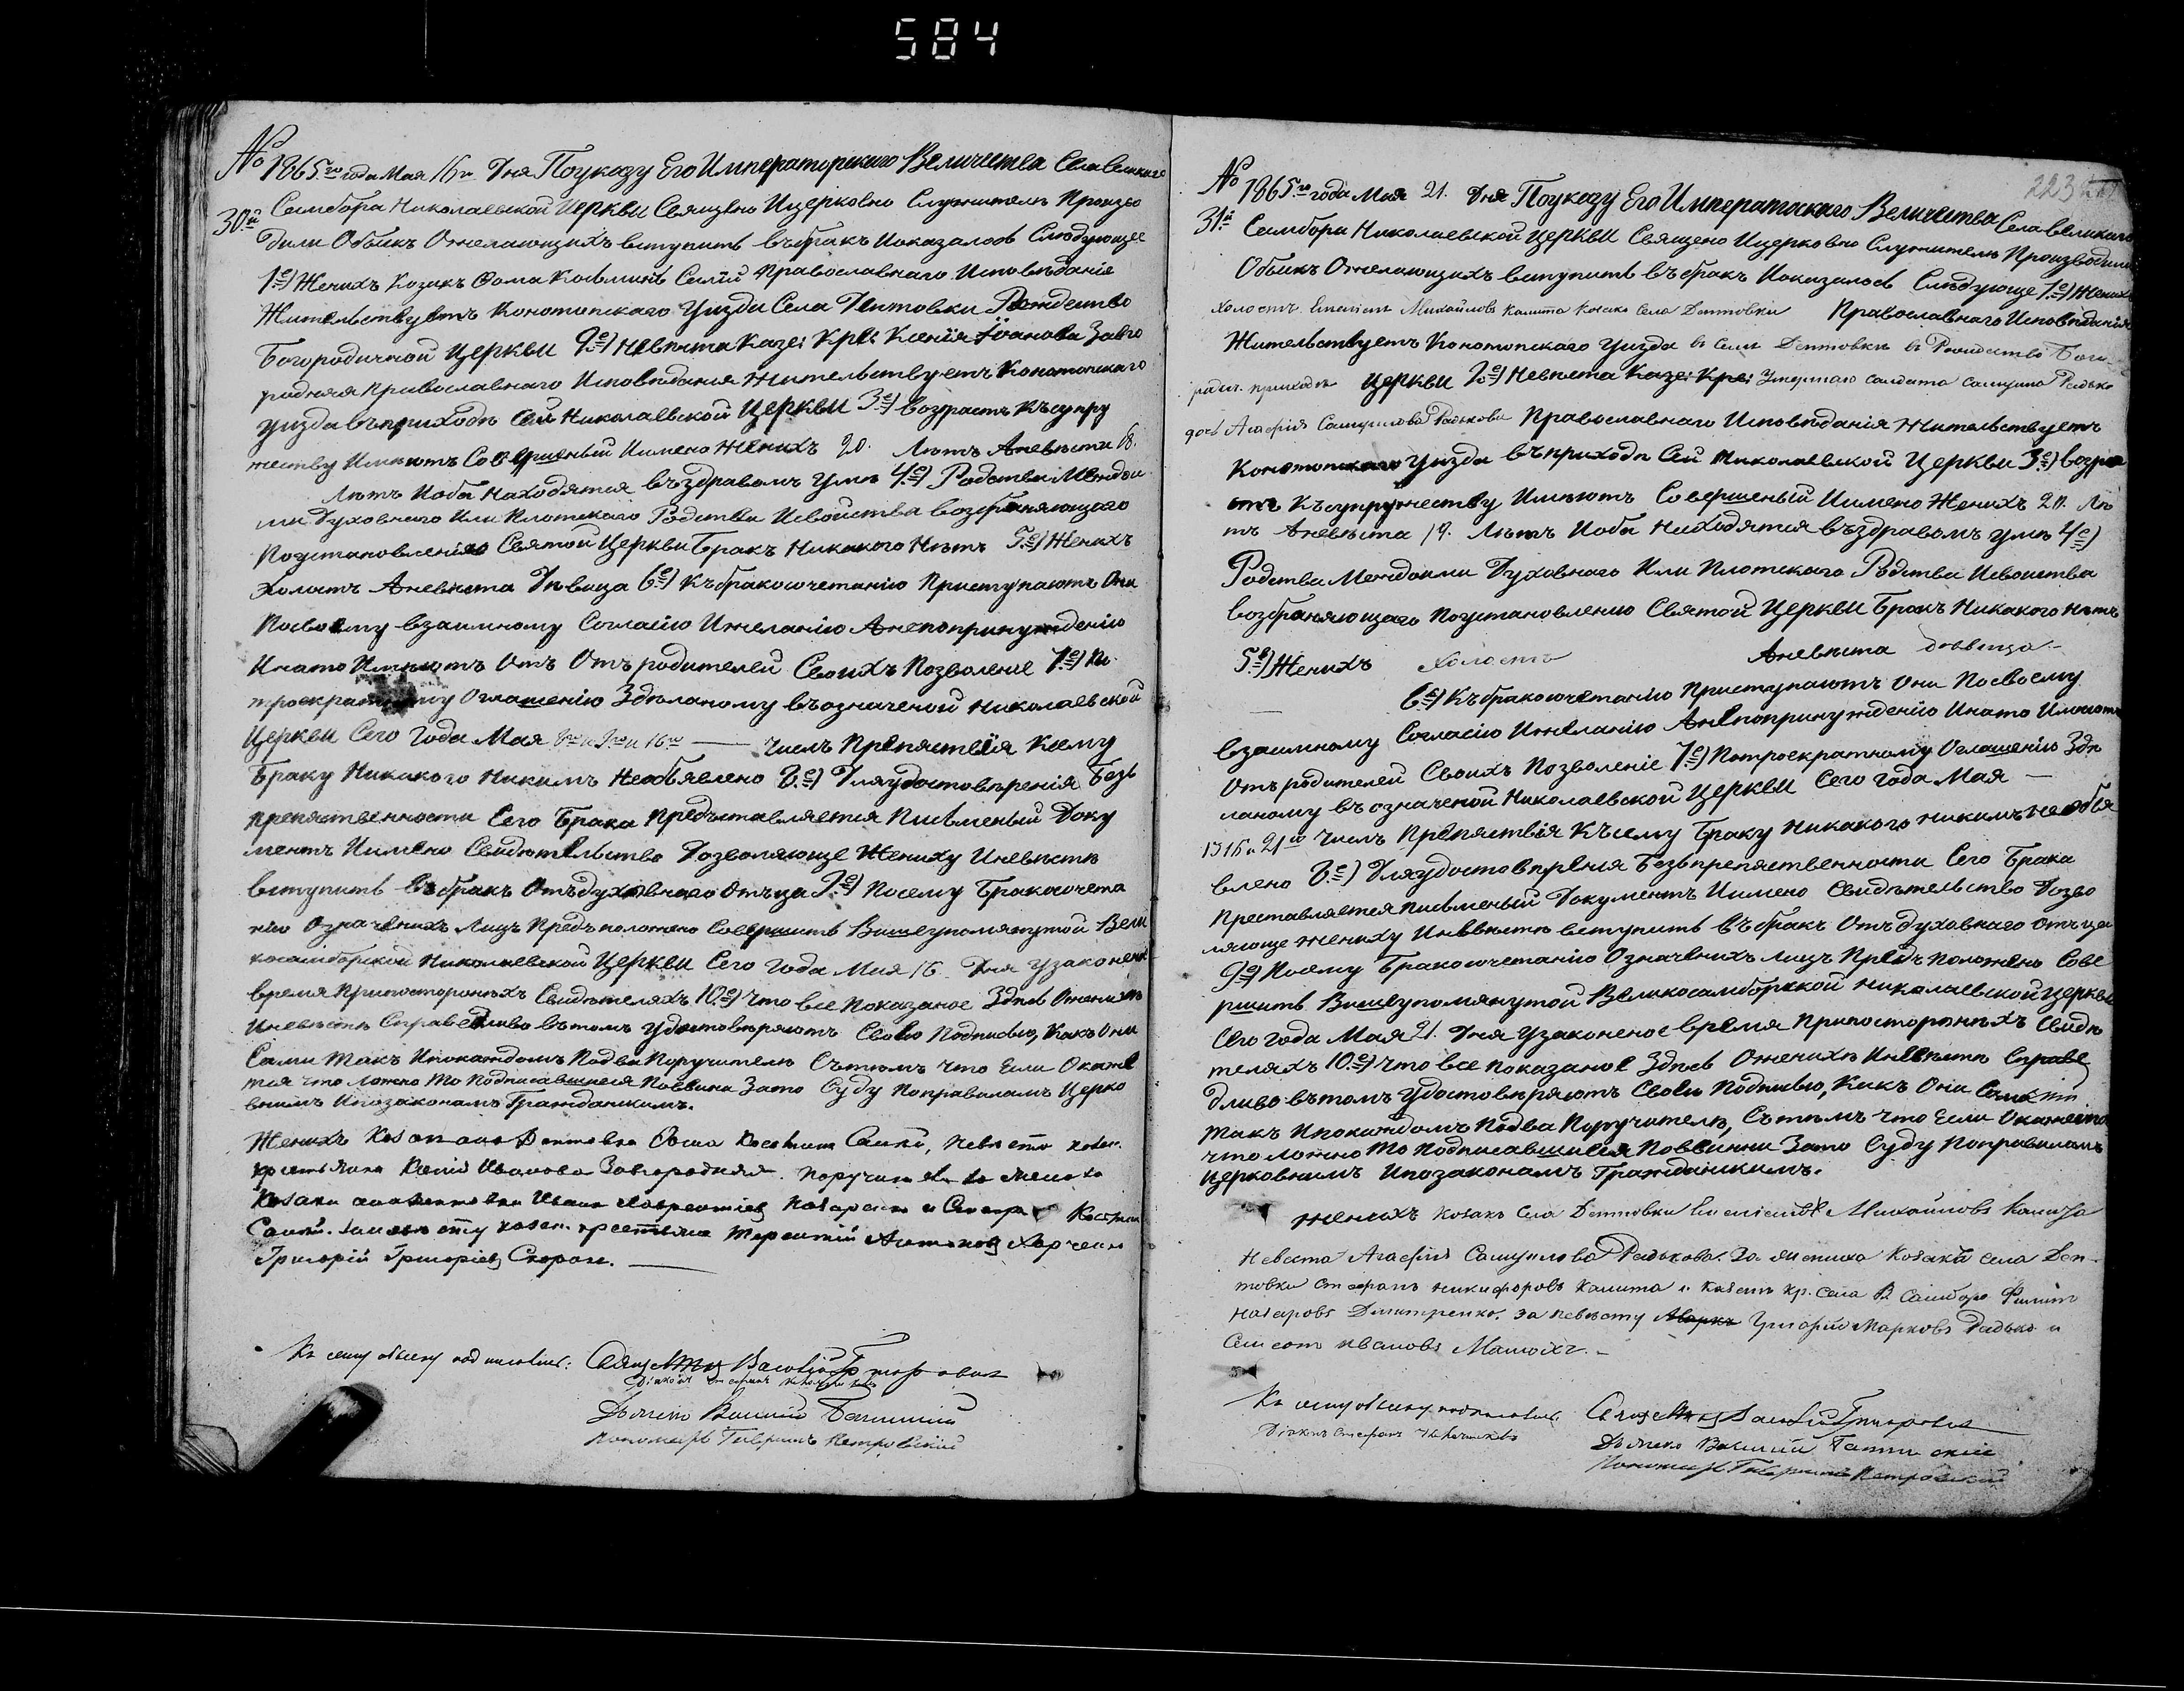 584
№ 1865го года Мая 16го Дня Поуказу Его Императорского Величества Села Великого
30.й Самбора Николаевской Церкви Священо Ицерковно Служители Произво
дили Обыск Ожелающихъ вступить въбракъ Иоказалось Слѣдующее
1.е) Женихъ Козакъ Фома Косминъ Салій Православнаго Исповѣданіе
Жительствуетъ Конотопскаго Уизда Села Дептовки Рождество
Богородичной Церкви 2.е) Невѣста Казе: Кре: Ксенія Іоанова Завго
родняя Православнаго Исповѣданія Жительствуетъ Конотопскаго
Уизда въприходѣ Сей Николаевской Церкви 3.е) Возрастъ Късупру
жеству Имѣютъ Совершеный Иимено Женихъ 20. Лѣтъ Аневѣста 18.
Лѣтъ Иоба Находятся Въздравомъ Умѣ 4.е) Родства Междои
ми Духовнаго Или Плотскаго Родства Исвойства возбраняющаго
Поустановленію Святой Церкви Бракъ Никакого Нѣтъ 5.е) Женихъ
Холостъ Аневѣста Дѣвица 6.е) Къбракосочетанію Приступаютъ Они
Посвоему взаимному Согласію Ижеланію Анепопринужденію
Инато Имѣютъ Отъ Отъродителей Своихъ Позволеніе 7.е) По
троекратному Оглашенію Здѣланому въозначеной Николаевской
Церкви Сего Года Мая 16го Числъ Препятствія Ксему
Браку Никакого Никимъ Необявлено 8.е) Дляудостовѣренія Безъ
препятственности Сего Брака Предъставляется Писменый Доку
ментъ Иимено Свидѣтельство Дозволяюще Жениху Иневѣстѣ
вступить Въбракъ Отъдуховнаго Отъца 9.е) Посему Бракосочета
нію Означеныхъ Лицъ Предъположено Совершить Вишеупомянутой Вели
косамборской Николаевской Церкви Сего Года Мая 16 Дня Узаконеное
время Припостороннѣхъ Свидѣтеляхъ 10.е) Что все Показаное Здѣсь Оженихѣ
Иневѣстѣ Справедливо вътомъ Удостовѣряютъ Своею Подписью, Какъ Они
Сами Такъ Ипокаждомъ Подва Поручителю Сътѣмъ Что Если Окаже
тся что Ложно То Подписавшиеся Повины Зато Суду Поправиламъ Церко
внымъ Ипозаконамъ Гражданскимъ.
Женихъ Козак села Дептовки Фома Косминъ Салій, невѣста казен.
крестьянка Ксенія Иванова Завгородняя. Поручители по женихѣ
Козаки села Дептовки Иванъ Лаврентіевъ Назаренко и Косминъ
Салій. По невѣсту казен. крестьяне Терентій Антоновъ Харченко
Григорій Григоріевъ Скорон.
Къ сему обыску подписались: Священникъ Василій Григоровичъ
Діаконъ Стефанъ
Дьячекъ Василій
Пономарь Гавриилъ Петровскій
223
№ 1865го года Мая 21. Дня Поуказу Его Императоскаго Величества Села Великого
31.й Самбора Николаевской Церкви Священо Ицерковно Служители Производили
Обыскъ Ожелающихъ вступить въбракъ Иоказалось Слѣдующе 1.е) Женихъ
холостъ Михайловъ Калита Козакъ села Дептовки Православнаго Исповѣданія
Жительствуетъ Конотопскаго Уизда в селѣ Дептовкѣ в Рождество Бого
родич. приходѣ Церкви 2.е) Невѣста Казе: Кре: Умершаго солдата Самуила Радько
дочь Агафія Самуилова Радькова Православнаго Исповѣданія Жительствуетъ
Конотопскаго Уизда въприходѣ Сей Николаевской Церкви 3.е) Возра
стъ Късупружеству Имѣютъ Совершеный Иимено Женихъ 20. Лѣ
тъ Аневѣста 19. Лѣтъ Иоба Находятся въздравомъ умѣ 4.е)
Родства Междоими Духовнаго Или Плотскаго Родства Исвойства
возбраняющаго Поустановленію Святой Церкви Бракъ Никакого Нѣтъ
5.е) Женихъ Холостъ Аневѣста дѣвица
6.е) Къбракосочетанію Приступаютъ Они Посвоему
взаимному Согласію Ижеланію Анепопринужденію Инато Имѣютъ
Отъродителей Своихъ Позволеніе 7.е) Потроекратному Оглашенію Здѣ
ланому въозначеной Николаевской Церкви Сего года Мая
и 21й Числъ Препятствія Късему Браку Никакого Никимъ Необя
влено 8.е) Дляудостовѣренія Безъпрепятственности Сего Брака
Преставляется Писменый Документъ Иимено Свидѣтельство Дозво
ляюще Жениху Иневѣстѣ вступить Въбракъ Отъдуховнаго отъца
9.е) Посему Бракосочетанію Означеныхъ Лицъ Предъположено Сове
ршить Вишеупомянутой Великосамборской Николаевской Церкви
Сего года Мая 21. Дня Узаконеное время Припостороннѣхъ Свидѣ
теляхъ 10.е) Что все показаное Здѣсь Оженихѣ Иневѣстѣ Справе
дливо вътомъ Удостовѣряютъ Своею Подписью, Какъ Они Сами
Такъ Ипокаждомъ Подва Поручителю, Сътѣмъ Что Если Окажется
что ложно То Подписавшиеся Повинни Зато Суду Поправиламъ
Церковнимъ Ипозаконамъ Гражданскимъ.
Женихъ Козакъ Села Дептовки Михайловъ Калита
Невѣста Агафія Самуилова Радькова. За жениха Козакъ села Деп
товки Стефанъ Никифоровъ Калита и казен. кр. села В. Самбора Филипъ
Назаровъ Дмитренко. За невѣсту Григорій Марковъ Радько и
Ивановъ
Къ сему обыску подписались: Священникъ Василій Григоровичъ
Діаконъ Стефанъ
Дьячекъ Василій
Пономарь Гавриилъ Петровскій